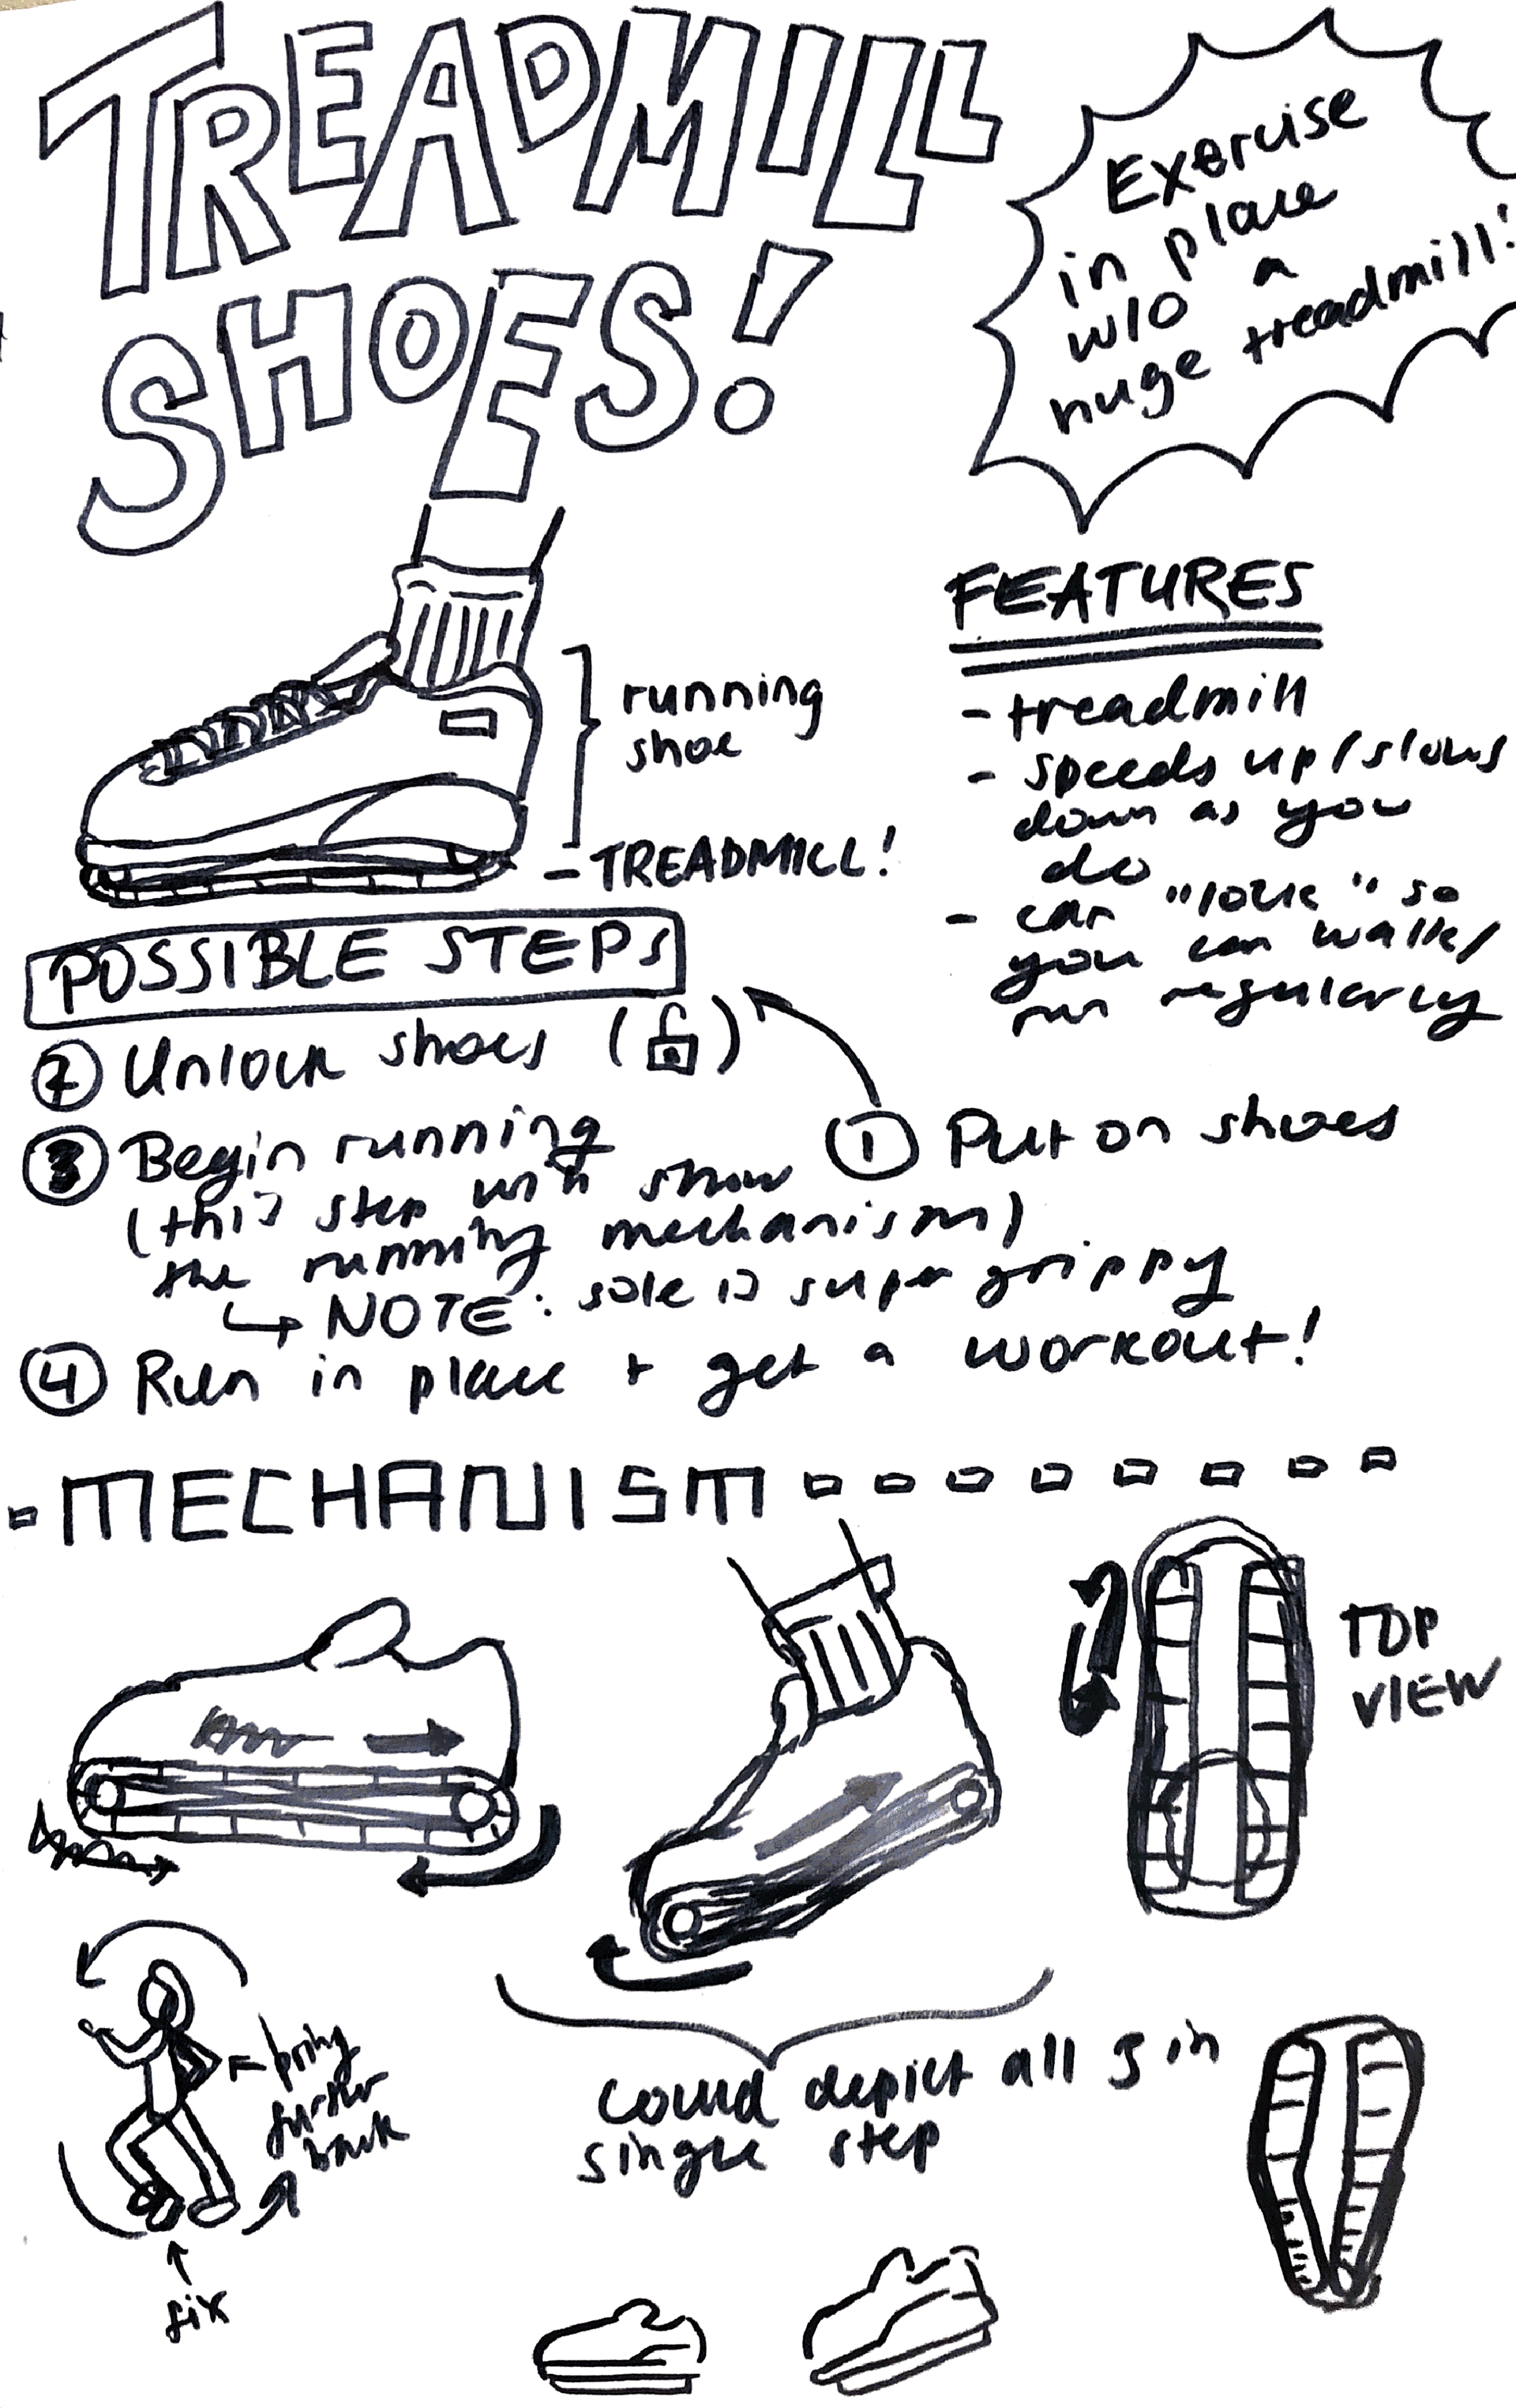 TREADMILL
SHOES!
Exercise
in place
w/o a
huge treadmill!
running
shoe
- TREADMILL!
FEATURES
- treadmill
- speeds up/slows
down as you
do
- can "lock" so
you can walk/
run regularly
POSSIBLE STEPS
① Put on shoes
② Unlock shoes ( )
③ Begin running
(this step will show
the running mechanism)
↳ NOTE: sole is super grippy
④ Run in place + get a workout!
MECHANISM
TOP
VIEW
bring
further
back
fix
could depict all 3 in
single step